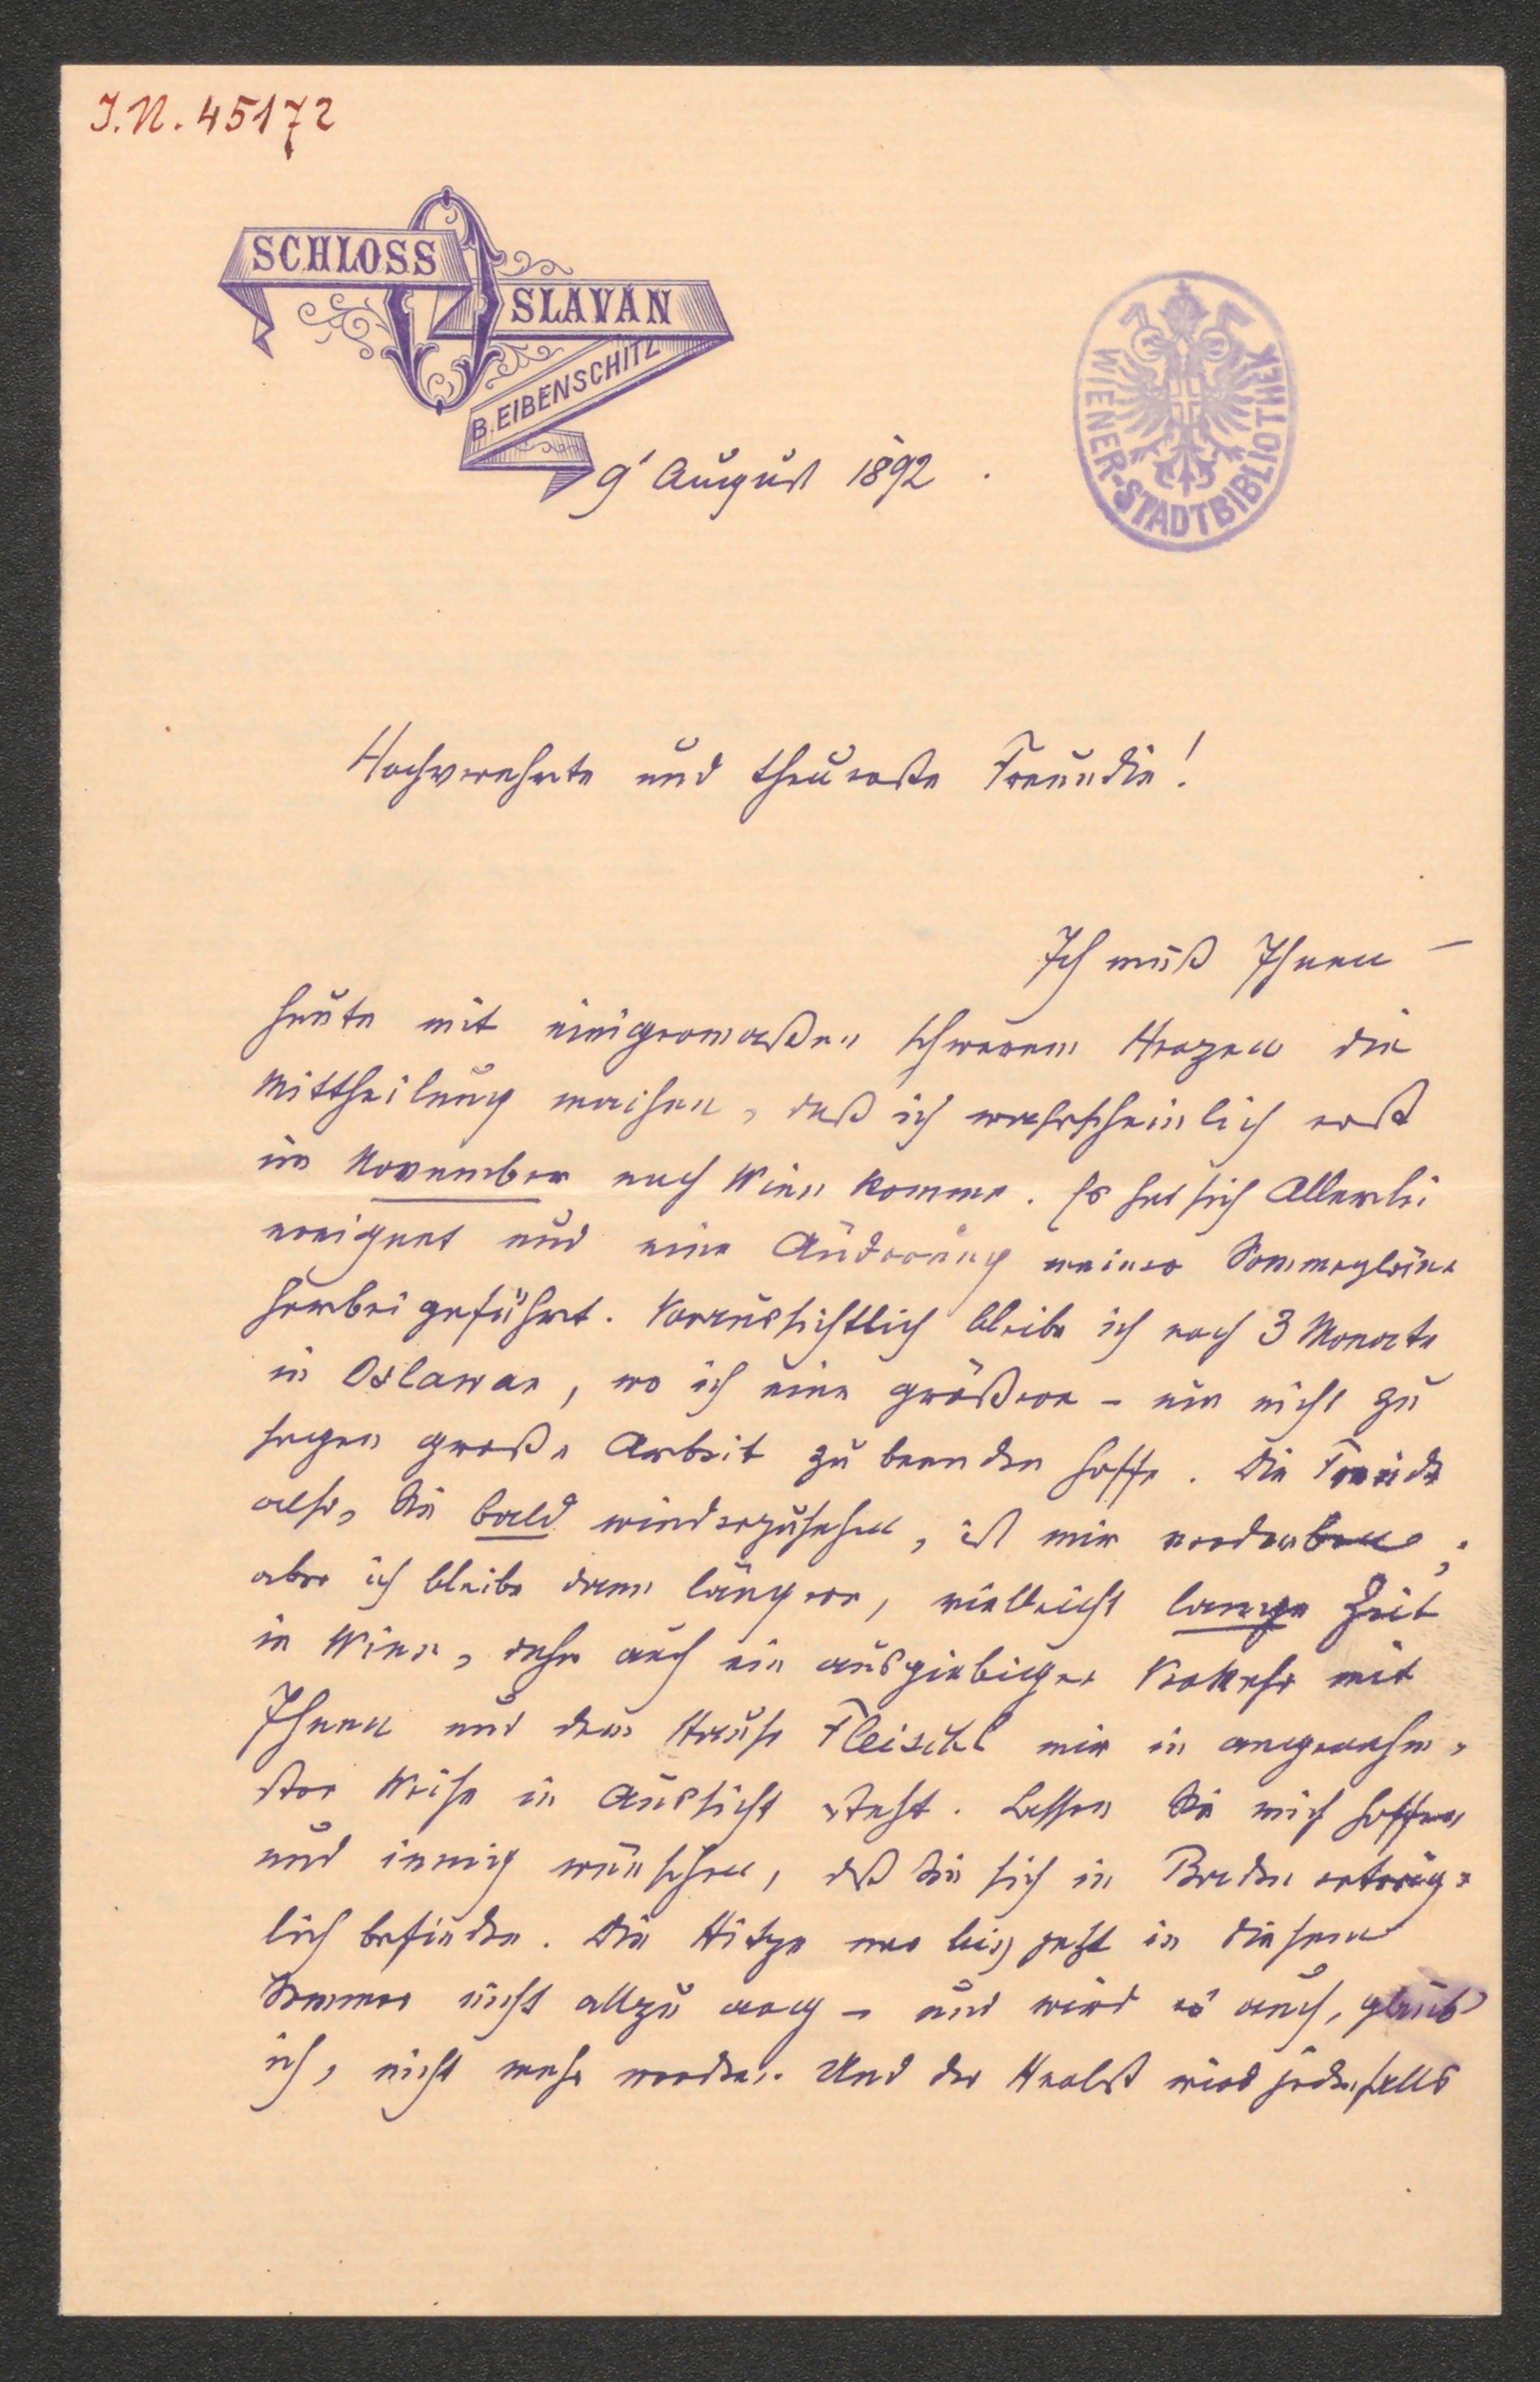 I.N. 45172
SCHLOSS
OSLAVAN
B. EIBENSCHITZ
WIENER-STADTBIBLIOTHEK
9' August 1892.
Hochverehrte und theuerste Freundin!
Ich muß Ihnen –
heute mit einigermaßen schwerem Herzen die
Mittheilung machen, daß ich wahrscheinlich erst
im November nach Wien komme. Es hat sich Allerlei
ereignet und eine Änderung meiner Sommerpläne
herbei geführt. Voraussichtlich bleibe ich noch 3 Monate
in Oslawan, wo ich eine größere – um nicht zu
sagen große Arbeit zu beenden hoffe. Die Freude
also, Sie bald wiederzusehen, ist mir verdorben;
aber ich bleibe dann länger, vielleicht lange Zeit
in Wien, daher auch ein ausgiebiger Verkehr mit
Ihnen und dem Hause Fleischl mir in angenehm-
ster Weise in Aussicht steht. Lassen Sie mich hoffen
und innig wünschen, daß Sie sich in Baden erträg-
lich befinden. Die Hitze war bis jetzt in diesem
Sommer nicht allzu arg – und wird es auch, glaub'
ich, nicht mehr werden. Und der Herbst wird jedenfalls